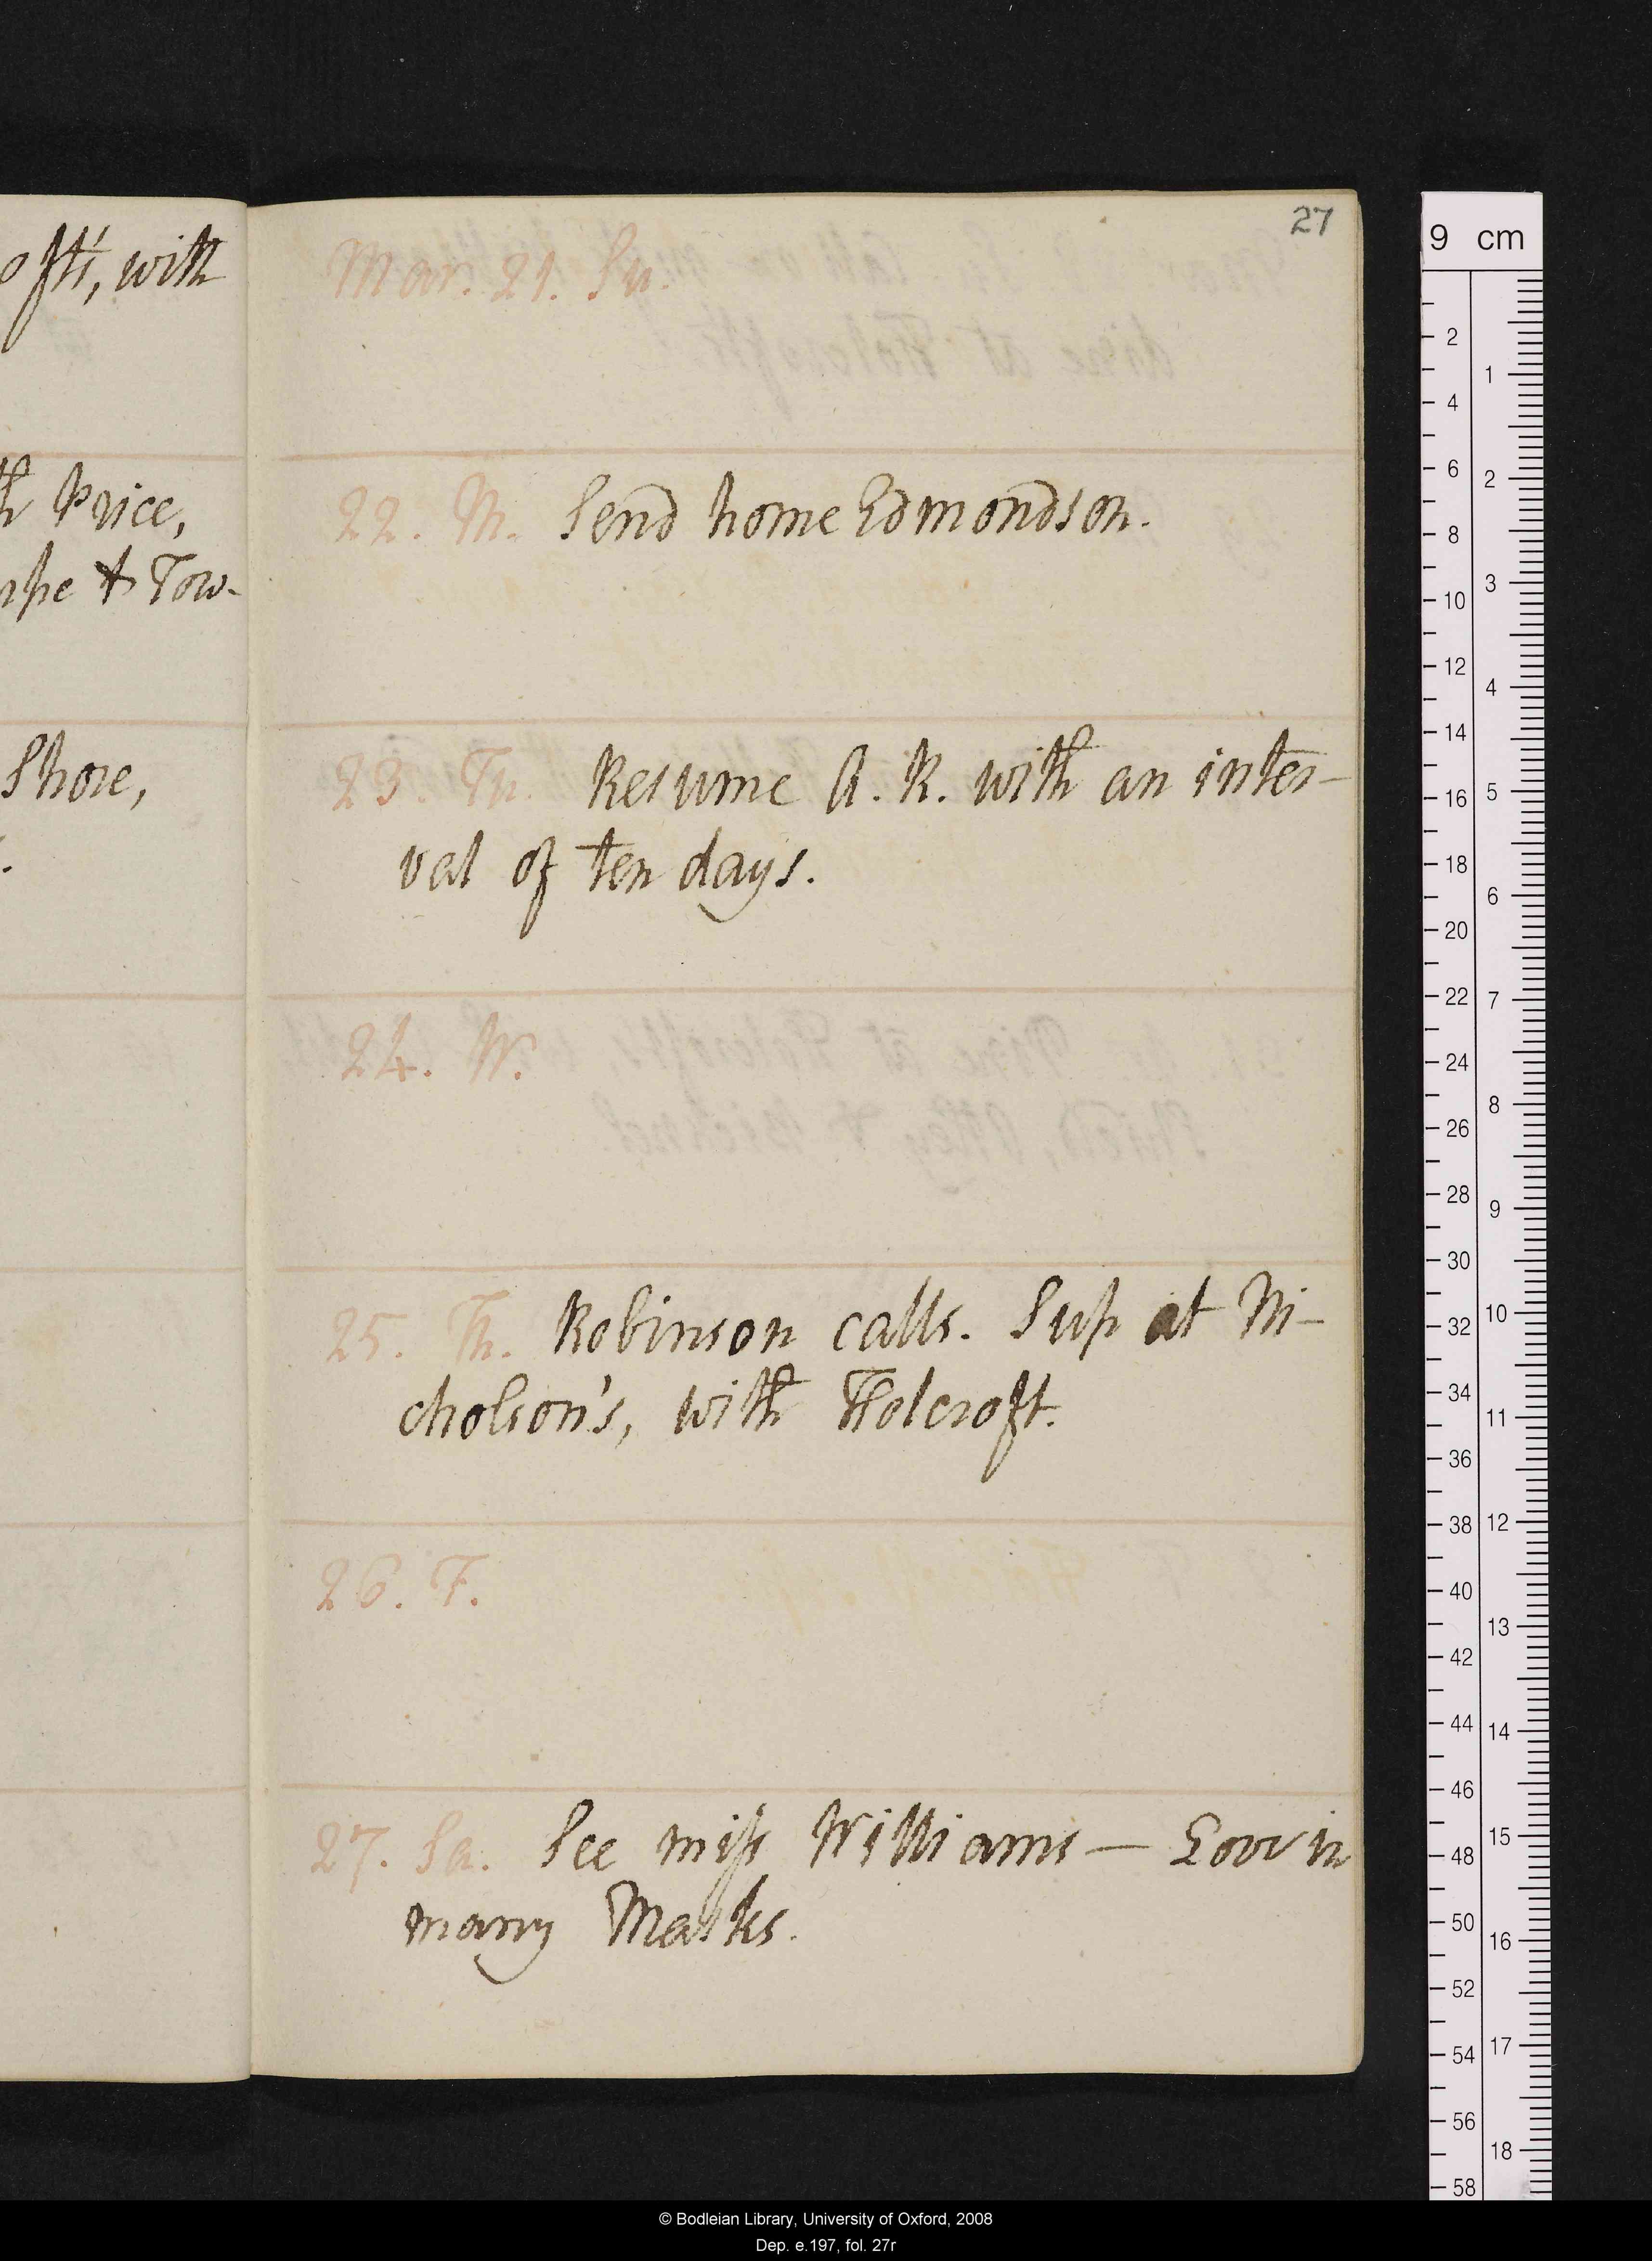 ofts', with
th Price,
rpe & Tow-
Shore,
27
Mar. 21. Su.
22. M. Send home Edmondson.
23. Tu. Resume A. R. with an inter-
val of ten days.
24. W.
25. Th. Robinson calls. Sup at Ni-
cholson's, with Holcroft.
26. F.
27. Sa. See miss Williams — Love in
many Masks.
9 cm
2
4
6
8
10
12
14
16
18
20
22
24
26
28
30
32
34
36
38
40
42
44
46
48
50
52
54
56
58
1
2
3
4
5
6
7
8
9
10
11
12
13
14
15
16
17
18
© Bodleian Library, University of Oxford, 2008
Dep. e.197, fol. 27r